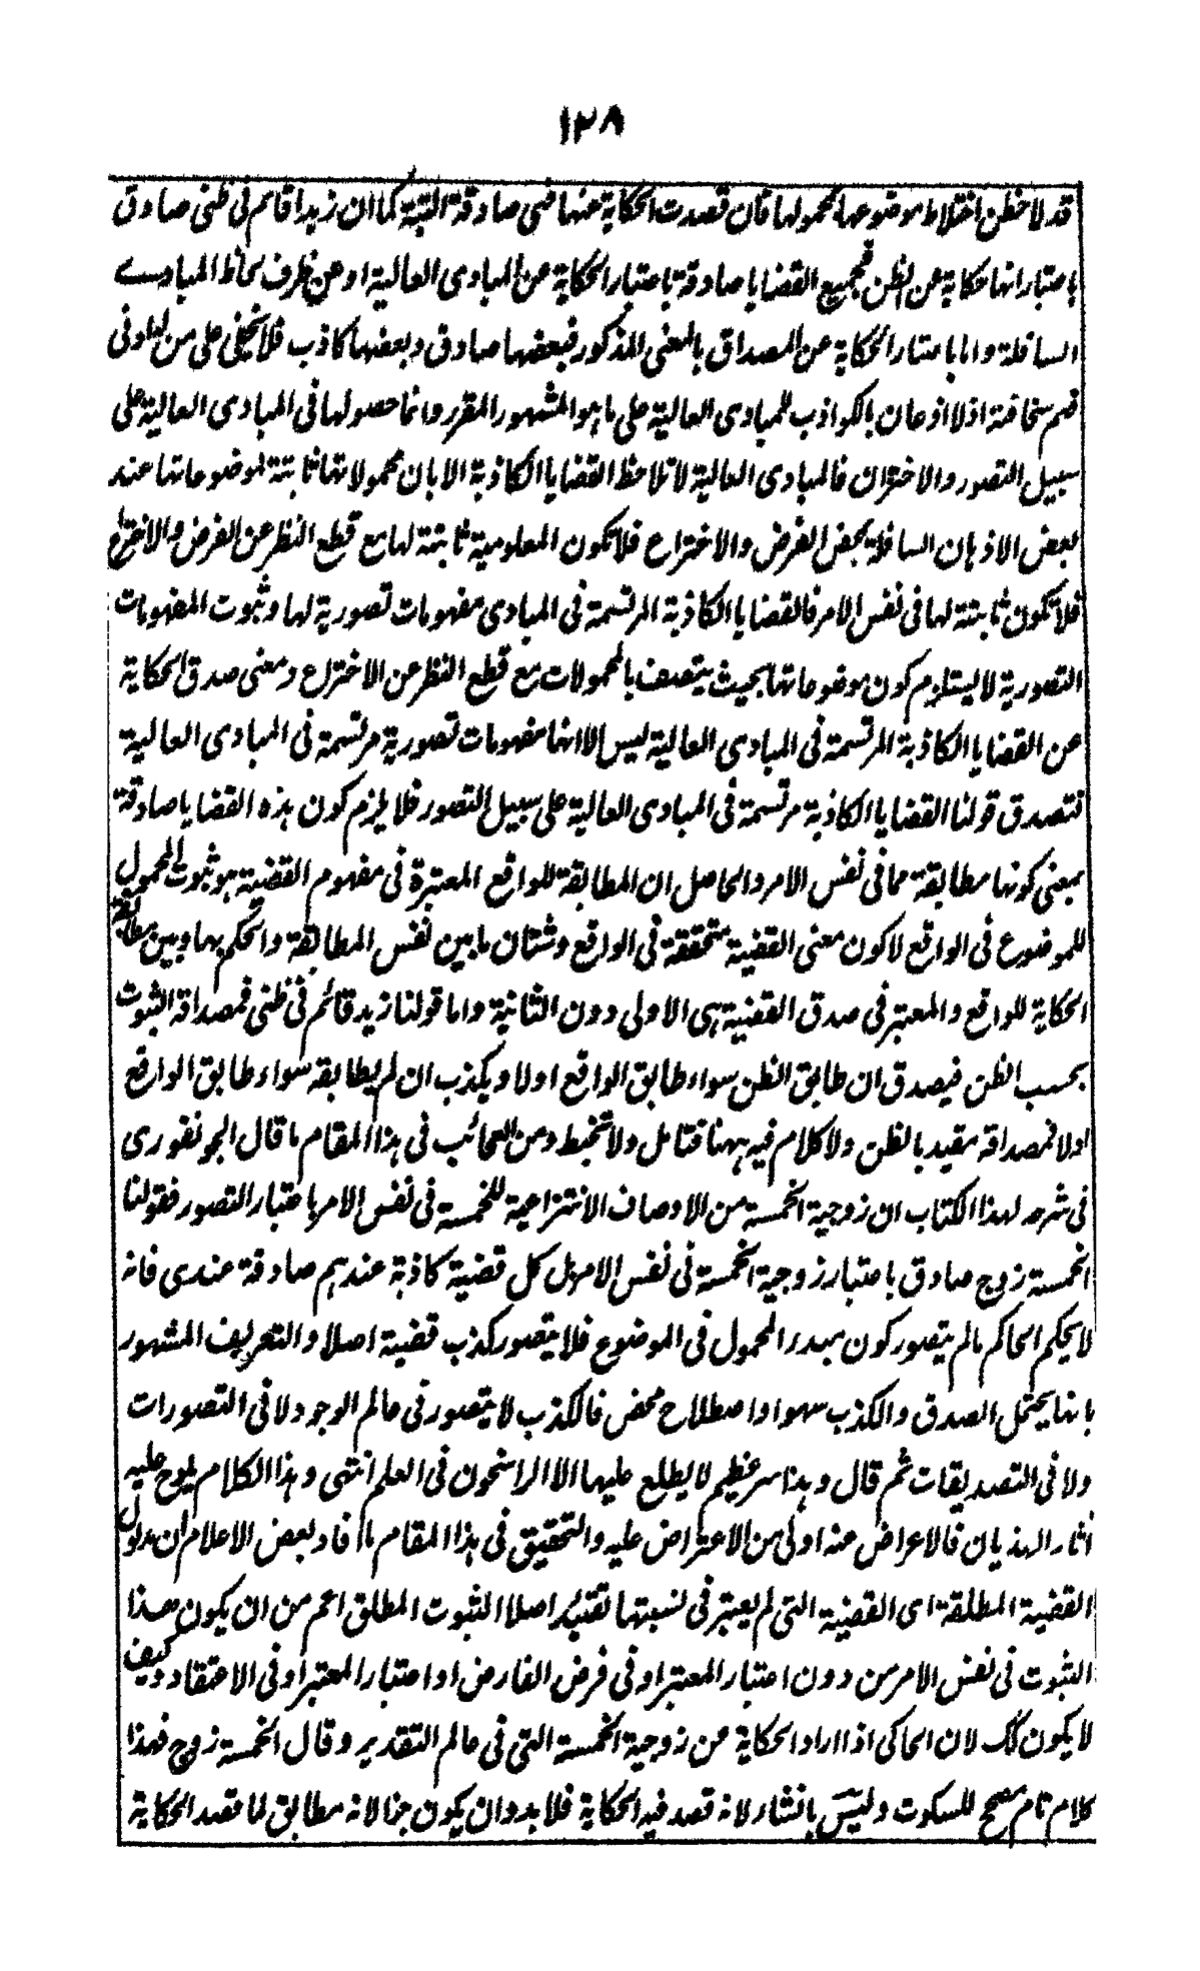 ١٢٨
قد لاحظن اختلاط موضوعها بمحمولها فان قصدت الحكاية عنها فهى صادقة البتة كما ان زيدا قائم فى ظنى صادق
باعتبار انها حكاية عن الظن فجميع القضايا صادقة باعتبار الحكاية عن المبادى العالية او عن ظرف لحاظ المبادى
السافلة واما باعتبار الحكاية عن المصداق بالمعنى المذكور فبعضها صادق وبعضها كاذب فلا يخفى على من له ادنى
فهم سخافته اذ لا اذعان بالكواذب للمبادى العالية على ما هو المشهور المقرر وانما حصولها فى المبادى العالية على
سبيل التصور والاختزان فالمبادى العالية لا تلاحظ القضايا الكاذبة الا بان محمولاتها ثابتة لموضوعاتها عند
بعض الاذهان السافلة بمحض الفرض والاختراع فلا تكون المعلومية ثابتة لها مع قطع النظر عن الفرض والاختراع
فلا تكون ثابتة لها فى نفس الامر فالقضايا الكاذبة المرتسمة فى المبادى مفهومات تصورية لها وثبوت المفهومات
التصورية لا يستلزم كون موضوعاتها بحيث يتصف بالمحمولات مع قطع النظر عن الاختراع ومعنى صدق الحكاية
عن القضايا الكاذبة المرتسمة فى المبادى العالية ليس الا انها مفهومات تصورية مرتسمة فى المبادى العالية
فتصدق قولنا القضايا الكاذبة مرتسمة فى المبادى العالية على سبيل التصور فلا يلزم كون هذه القضايا صادقة
بمعنى كونها مطابقة لما فى نفس الامر والحاصل ان المطابقة للواقع المعتبرة فى مفهوم القضية هو ثبوت المحمول
للموضوع فى الواقع لا كون معنى القضية متحققة فى الواقع وشتان ما بين نفس المطابقة والحكم بها وبين مطابقة
الحكاية للواقع والمعتبر فى صدق القضية هى الاولى دون الثانية واما قولنا زيد قائم فى ظنى فمصداقه الثبوت
بحسب الظن فيصدق ان طابق الظن سواء طابق الواقع اولا ويكذب ان لم يطابقه سواء طابق الواقع
اولا فمصداقه مقيد بالظن ولا كلام فيه ههنا فتامل ولا تتخبط ومن العجائب فى هذا المقام ما قال الجونفورى
فى شرحه لهذا الكتاب ان زوجية الخمسة من الاوصاف الانتزاعية للخمسة فى نفس الامر باعتبار التصور فقولنا
الخمسة زوج صادق باعتبار زوجية الخمسة فى نفس الامر بل كل قضية كاذبة عندهم صادقة عندى فانه
لا يحكم الحاكم ما لم يتصور كون مبدء المحمول فى الموضوع فلا يتصور كذب قضية اصلا والتعريف المشهور
بانها يحتمل الصدق والكذب سهو او اصطلاح محض فالكذب لا يتصور فى عالم الوجود لا فى التصورات
ولا فى التصديقات ثم قال وهذا سر عظيم لا يطلع عليها الا الراسخون فى العلم انتهى وهذا الكلام يلوح عليه
اثار الهذيان فالاعراض عنه اولى من الاعتراض عليه والتحقيق فى هذا المقام ما افاد بعض الاعلام ان مدلول
القضية المطلقة اى القضية التى لم يعتبر فى نسبتها تقييد اصلا الثبوت المطلق اعم من ان يكون هذا
الثبوت فى نفس الامر من دون اعتبار المعتبر او فى فرض الفارض او اعتبار المعتبر او فى الاعتقاد وكيف
لا يكون كك لان الحاكى اذا اراد الحكاية عن زوجية الخمسة التى فى عالم التقدير وقال الخمسة زوج فهذا
كلام تام يصح للسكوت وليس بانشاء لانه قصد فيه الحكاية فلا بد وان يكون خبرا لانه مطابق لما قصد الحكاية